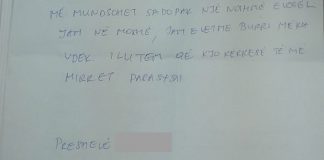 ME MUNDSCHET SADOPAK NJË NDIHMË E VOGEL
JAM NË MOSHE, JAM E VETME BURRI ME KA
VDEK I LUTEM QË KJO KERKESË TË ME
MIRRET PARASYSH
PRESHEVË